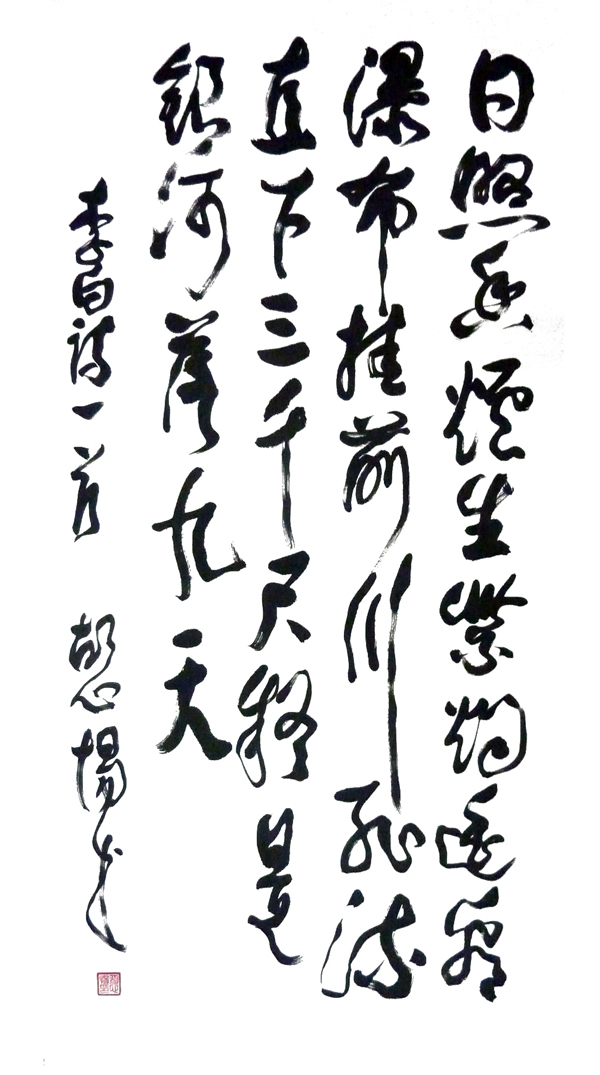 日照香爐生紫烟遥看
瀑布挂前川飛流
直下三千尺疑是
銀河落九天
李白詩一首 揚书